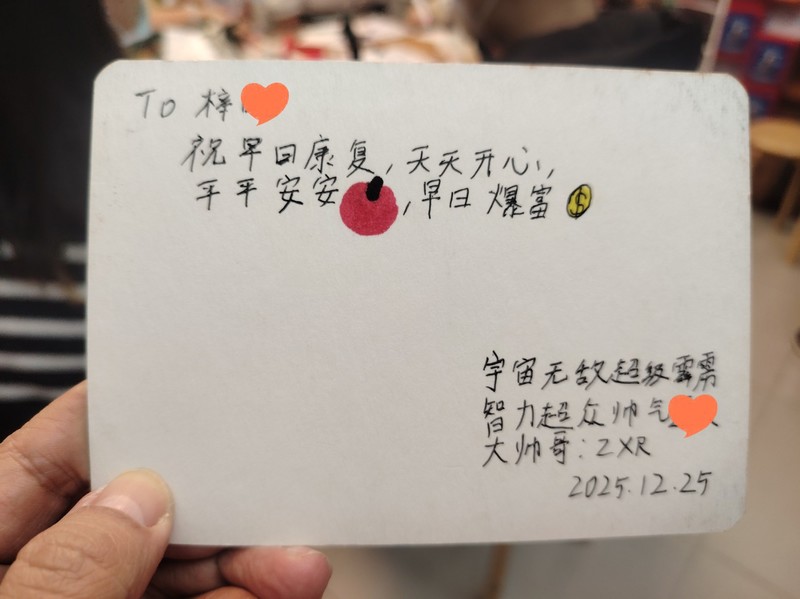 To 梓
祝早日康复,天天开心,
平平安安,早日爆富$
宇宙无敌超级霹雳
智力超众帅气
大帅哥:ZXR
2025.12.25